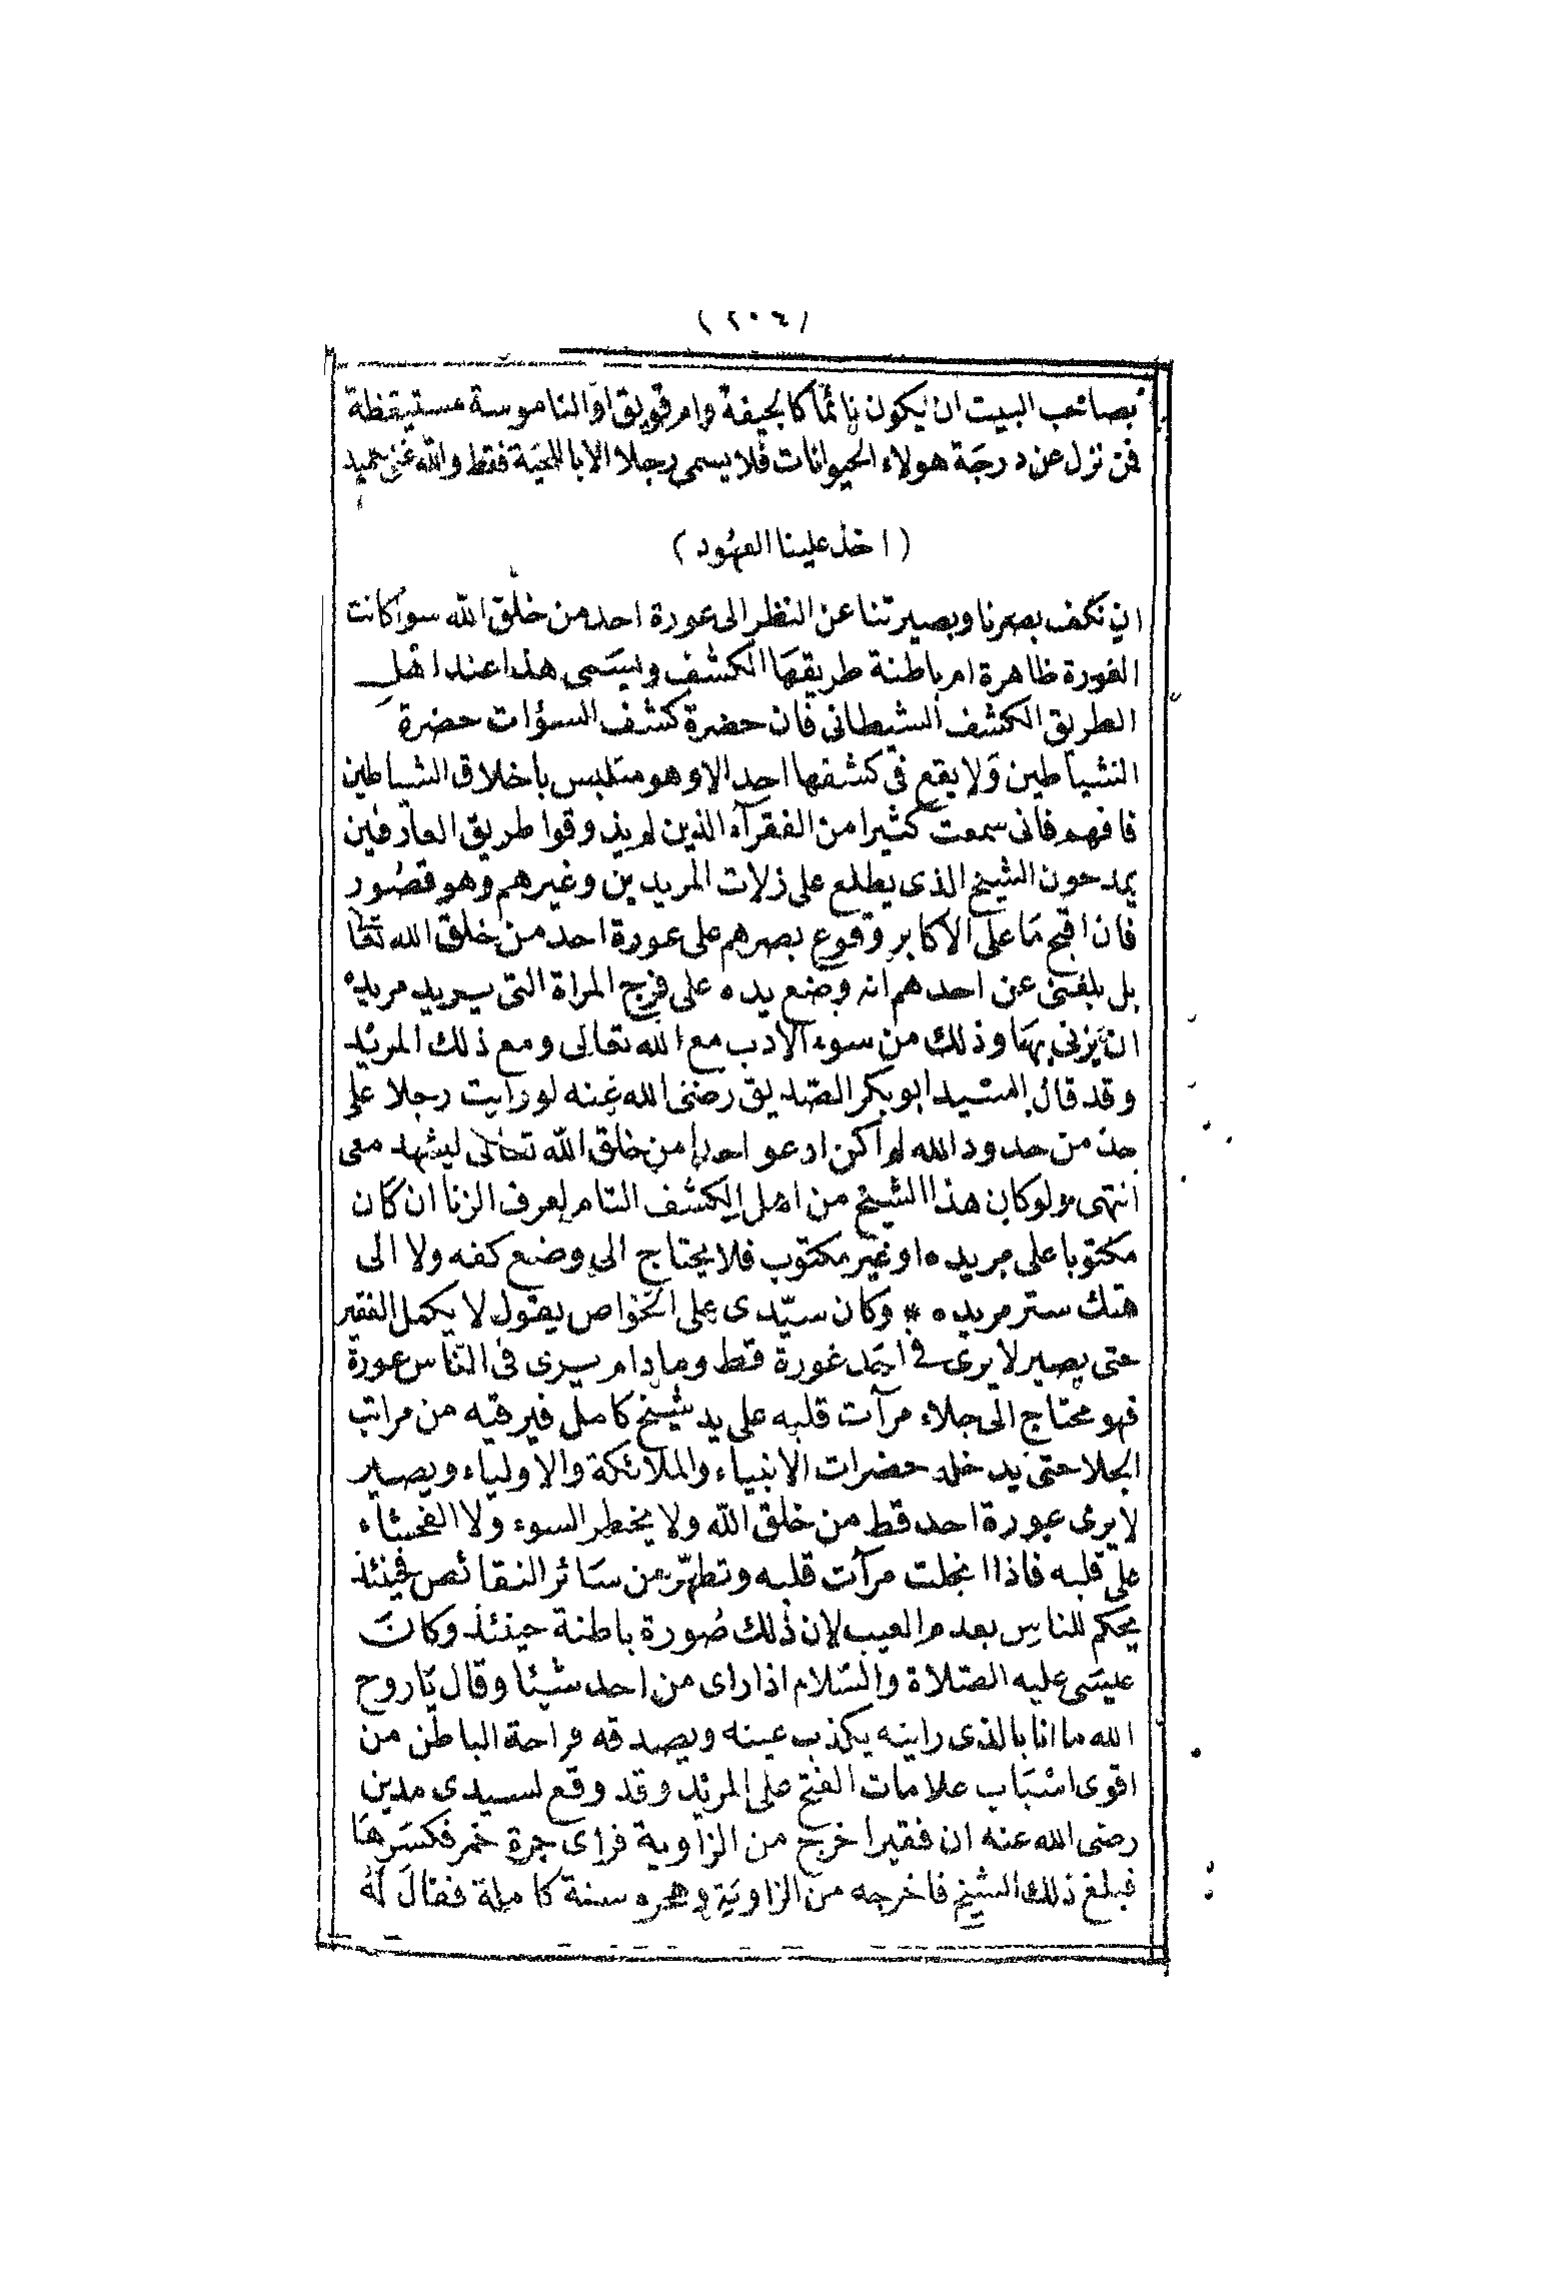 (٢٠٦)
بصاحب البيت ان يكون نائمًا كالجيفة وام قويق او الناموسة مستيقظة
فمن نزل عن درجة هولاء الحيوانات فلا يسمى رجلا الا باللحية فقط والله غنى حميد
(اخذ علينا العهود)
ان نكف بصرنا وبصيرتنا عن النظر الى عورة احد من خلق الله سوآ كانت
العورة ظاهرة ام باطنة طريقها الكشف ويسمى هذا عند اهل
الطريق الكشف الشيطانى فان حضرة كشف السؤات حضرة
الشياطين ولا يقع فى كشفها احد الا وهو متلبس باخلاق الشياطين
فافهم فانى سمعت كثيرا من الفقرآء الذين لم يذوقوا طريق العارفين
يمدحون الشيخ الذى يطلع على زلات المريدين وغيرهم وهو قصور
فان اقبح ما على الاكابر وقوع بصرهم على عورة احد من خلق الله تعا
بل بلغنى عن احدهم انه وضع يده على فرج المراة التى يريد مريده
ان يزنى بها وذلك من سوء الادب مع الله تعالى ومع ذلك المريد
وقد قال السيد ابو بكر الصديق رضى الله عنه لو رايت رجلا على
حد من حدود الله لم اكن ادعو احدا من خلق الله تعالى ليشهد معى
انتهى ولو كان هذا الشيخ من اهل الكشف التام لعرف الزنا ان كان
مكتوبا على مريده او غير مكتوب فلا يحتاج الى وضع كفه ولا الى
هتك ستر مريده * وكان سيّدى على الخواص يقول لا يكمل الفقير
حتى يصير لا يرى فى احد عورة قط وما دام يرى فى الناس عورة
فهو محتاج الى جلاء مرآت قلبه على يد شيخ كامل فيرقيه من مراتب
الجلا حتى يدخله حضرات الانبياء والملائكة والاولياء ويصير
لا يرى عورة احد قط من خلق الله ولا يخطر السوء ولا الفحشاء
على قلبه فاذا انجلت مرآت قلبه وتطهّر من سائر النقائص فحينئذ
يحكم للناس بعدم العيب لان ذلك صورة باطنة حينئذ وكان
عيسى عليه الصلاة والسّلام اذا راى من احد شيئا وقال يا روح
الله ما انا بالذى رايته يكذب عينه ويصدقه فراحة الباطن من
اقوى اسباب علامات الفتح على المريد وقد وقع لسيدى مدين
رضى الله عنه ان فقيرا خرج من الزاوية فراى جرة خمر فكسرها
فبلغ ذلك الشيخ فاخرجه من الزاوية وهجره سنة كاملة فقال له